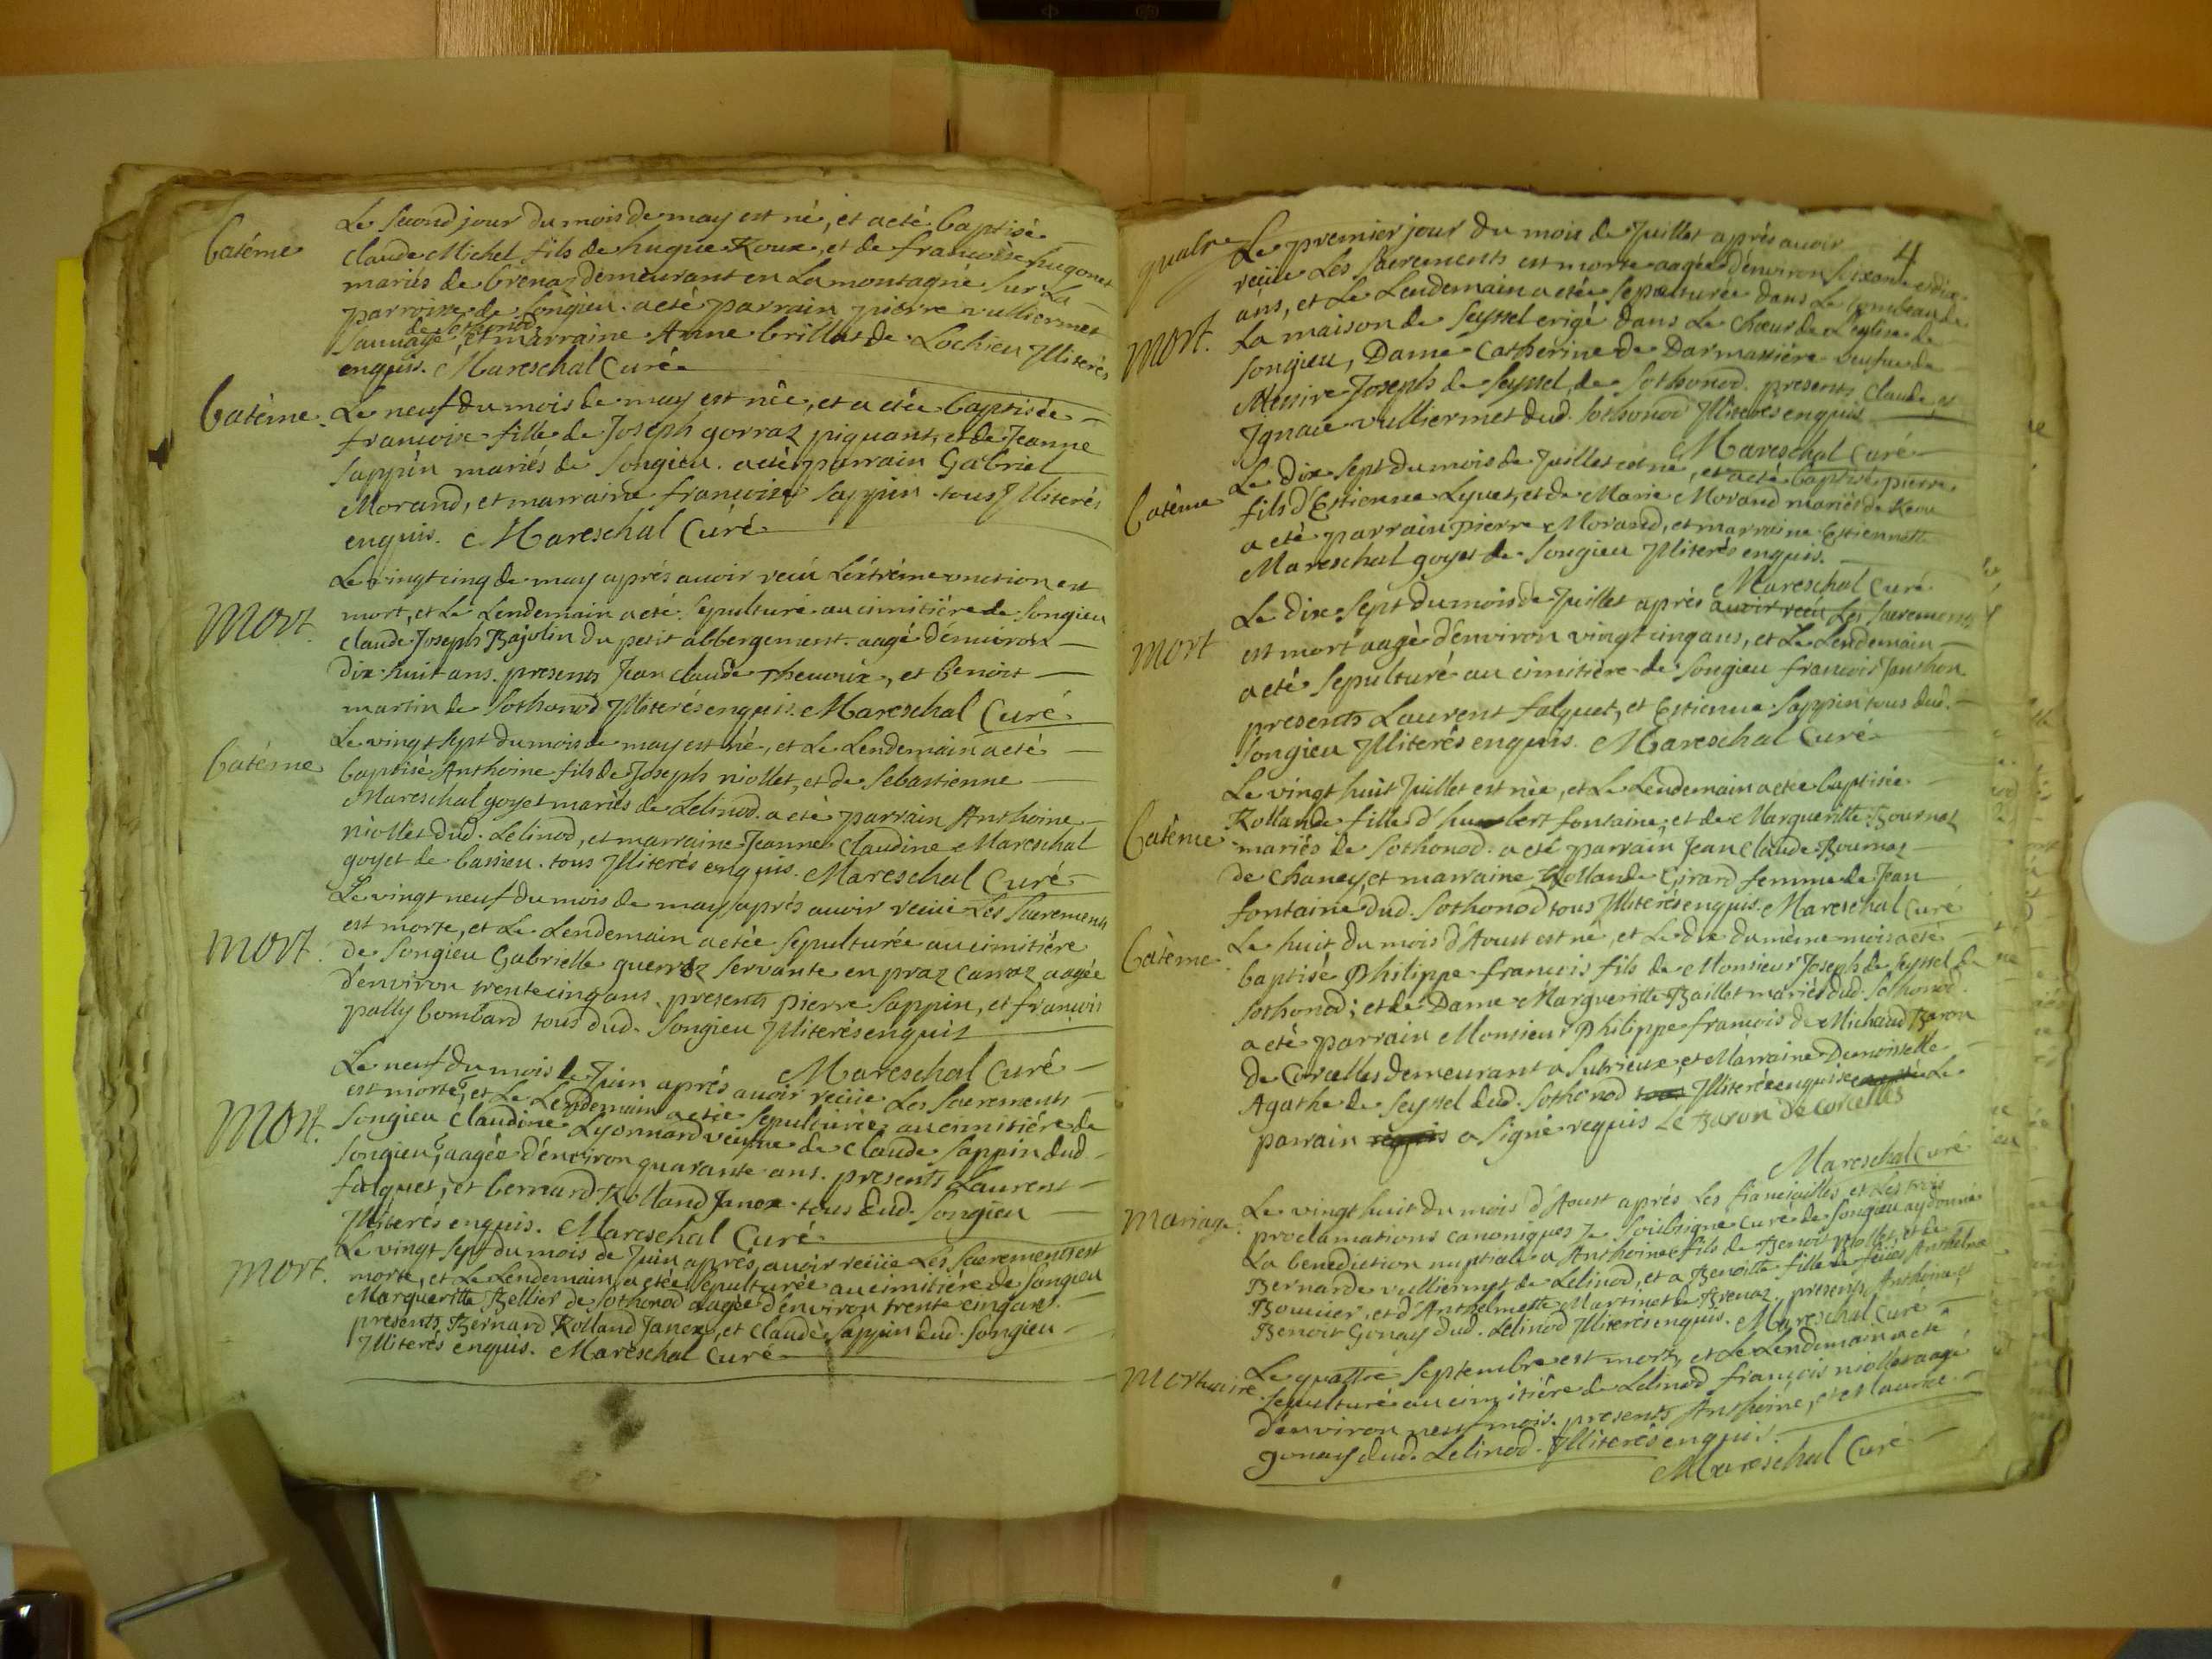 Batéme
Le second jour du mois de may est né, et a eté baptisé
Claude Michel fils de hugue Roux, et de francoise hugonet
mariés de brenaz demeurant en La montagne sur La
parroisse de Songieu. a eté parrain pierre vulliermet
Sauvage de Sothonod, et marraine Anne brillat de Lochieu Jlliterés
enquis. Mareschal Curé
Batéme.
Le neuf du mois de may est née, et a etée baptisée
francoise fille de Joseph gorraz piquant, et de Jeanne
Sappin mariés de Songieu. a eté parrain Gabriel
Morand, et marraine francoise Sappin tous Jlliterés
enquis. Mareschal Curé
Mort.
Le vingt cinq de may aprés avoir reçü L'extréme onction est
mort, et Le Lendemain a eté sepulturé au cimitiére de Songieu
Claude Joseph Bajolin du petit abbergement. aagé d'environ
dix huit ans. presents Jean claude Thevenix, et Benoit
martin de Sothonod Jlliterés enquis. Mareschal Curé
Batéme
Le vingt sept du mois de may est né, et Le Lendemain a eté
baptisé Anthoine fils de Joseph niollet, et de Sebastienne
Mareschal goyet mariés de Lelinod. a eté parrain Anthoine
niollet dud. Lelinod, et marraine Jeanne Claudine Mareschal
goyet de bassieu. tous Jlliterés enquis. Mareschal Curé
Mort.
Le vingt neuf du mois de may aprés avoir reçüe Les Sacrements
est morte, et Le Lendemain a etée sepulturée au cimitiére
de Songieu Gabrielle guerraz servante en praz carraz aagée
d'environ trente cinq ans. presents pierre Sappin, et francois
pally bombard tous dud. Songieu Jlliterés enquis
Mareschal Curé
Mort.
Le neuf du mois de Juin aprés avoir reçüe Les Sacrements
est morte, et Le Lendemain a etée sepulturée au cimitiére de
Songieu Claudine Lyonnard veufve de Claude Sappin dud
Songieu, aagée d'environ quarante ans. presents Laurent
falquet, et bernard Rolland Janex. tous dud. Songieu
Jlliterés enquis. Mareschal Curé
Mort.
Le vingt sept du mois de Juin aprés avoir reçüe Les Sacrements est
morte, et Le Lendemain a etée sepulturée au cimitiére de Songieu
Marguerithe Bellier de Sothonod aagée d'environ trente cinq ans.
presents Bernard Rolland Janex, et Claude Sappin dud. Songieu
Jlliterés enquis. Mareschal Curé
quatre
4
Mort.
Le premier jour du mois de Juillet aprés avoir
reçüe Les Sacrements est morte aagée d'environ soixante et dix
ans, et Le Lendemain a etée sepulturée dans Le tombeau de
La maison de Seyssel erigé dans Le chœur de L'eglise de
Songieu, Dame Catherine de Darmassiére veufve de
Messire Joseph de Seyssel de Sothonod. presents Claude et
Jgnace vulliermet dud. Sothonod Jlliterés enquis
Mareschal Curé
Batéme
Le dix sept du mois de Juillet est né, et a eté baptisé pierre
fils d'Estienne Lyvet, et de Marie Morand mariés de
a eté parrain pierre Morand, et marraine Estiennette
Mareschal goyet de Songieu Jlliterés enquis.
Mareschal Curé
Mort
Le dix sept du mois de Juillet aprés avoir reçü Les Sacrements
est mort aagé d'environ vingt cinq ans, et Le Lendemain
a eté sepulturé au cimitiére de Songieu francois Janthon
presents Laurent falquet, et Estienne Sappin tous dud.
Songieu Jlliterés enquis. Mareschal Curé
Batéme
Le vingt huit Juillet est née, et Le Lendemain a etée baptisée
Rollande fille d'humbert fontaine, et de Marguerithe Bournaz
mariés de Sothonod. a eté parrain Jean Claude Bournaz
de Chaney, et marraine Rollande Girard femme de Jean
fontaine dud. Sothonod tous Jlliterés enquis. Mareschal Curé
Batéme
Le huit du mois d'Aoust est né, et Le dix du méme mois a eté
baptisé Philippe francois fils de Monsieur Joseph de Seyssel de
Sothonod; et de Dame Marguerithe Baillet mariés dud. Sothonod.
a eté parrain Monsieur Philippe francois de Michaud Baron
de Corcelles demeurant a Sutrieux, et Marraine Demoiselle
Agathe de Seyssel dud. Sothonod tous Jlliterée enquise Le
parrain requis a signé requis Le Baron de Corcelles
Mareschal Curé
Mariage.
Le vingt huit du mois d'Aoust aprés Les fiancjailles et Les trois
proclamations canoniques Je soubsigné Curé de Songieu ay donné
La benediction nuptiale a Anthoine fils de Benoit niollet, et de
Bernarde vulliermet de Lelinod, et a Benoitte fille de feüs Anthelme
Bouvier, et d'Anthelmette Martinet de Brenaz. presents Anthoine et
Benoit Gonay dud. Lelinod Jlliterés enquis. Mareschal Curé
Mortuaire.
Le quattre Septembre est mort, et Le Lendemain a eté
sepulturé au cimitiére de Lelinod francois niollet aagé
d'environ neuf mois. presents Anthoine, et Maurice
gonay dud. Lelinod. Jlliterés enquis.
Mareschal Curé